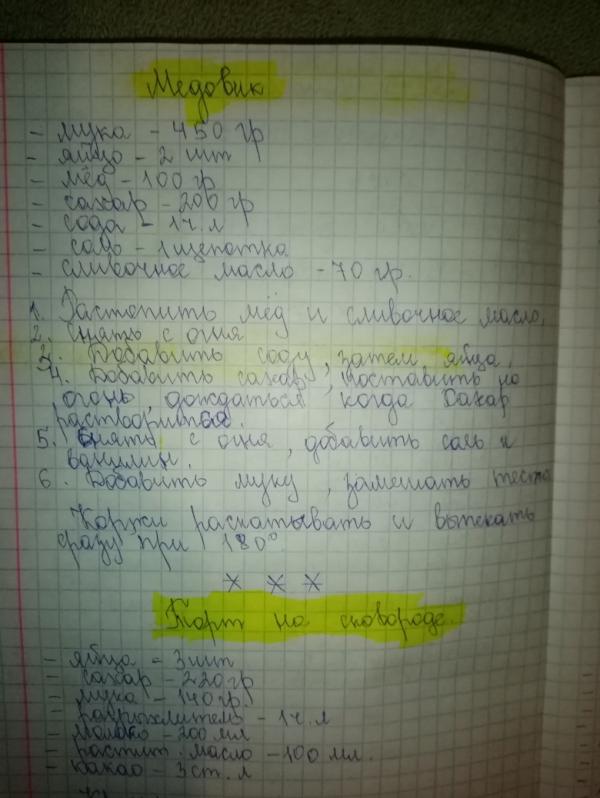 Медовик
- мука - 450 гр
- яйцо - 2 шт
- мёд - 100 гр
- сахар - 200 гр
- сода - 1 ч. л
- соль - 1 щепотка
- сливочное масло - 70 гр.
1. Растопить мёд и сливочное масло.
2. Снять с огня
3. Добавить соду, затем яйца.
4. Добавить сахар, поставить на
огонь, дождаться, когда сахар
растворится.
5. Снять с огня, добавить соль и
ванилин.
6. Добавить муку, замешать тесто
Коржи раскатывать и выпекать
сразу при 180°.
* * *
Торт на сковороде.
- яйца - 3 шт
- сахар - 220 гр
- мука - 140 гр.
- разрыхлитель - 1 ч. л
- молоко - 200 мл
- растит. масло - 100 мл.
- какао - 3 ст. л